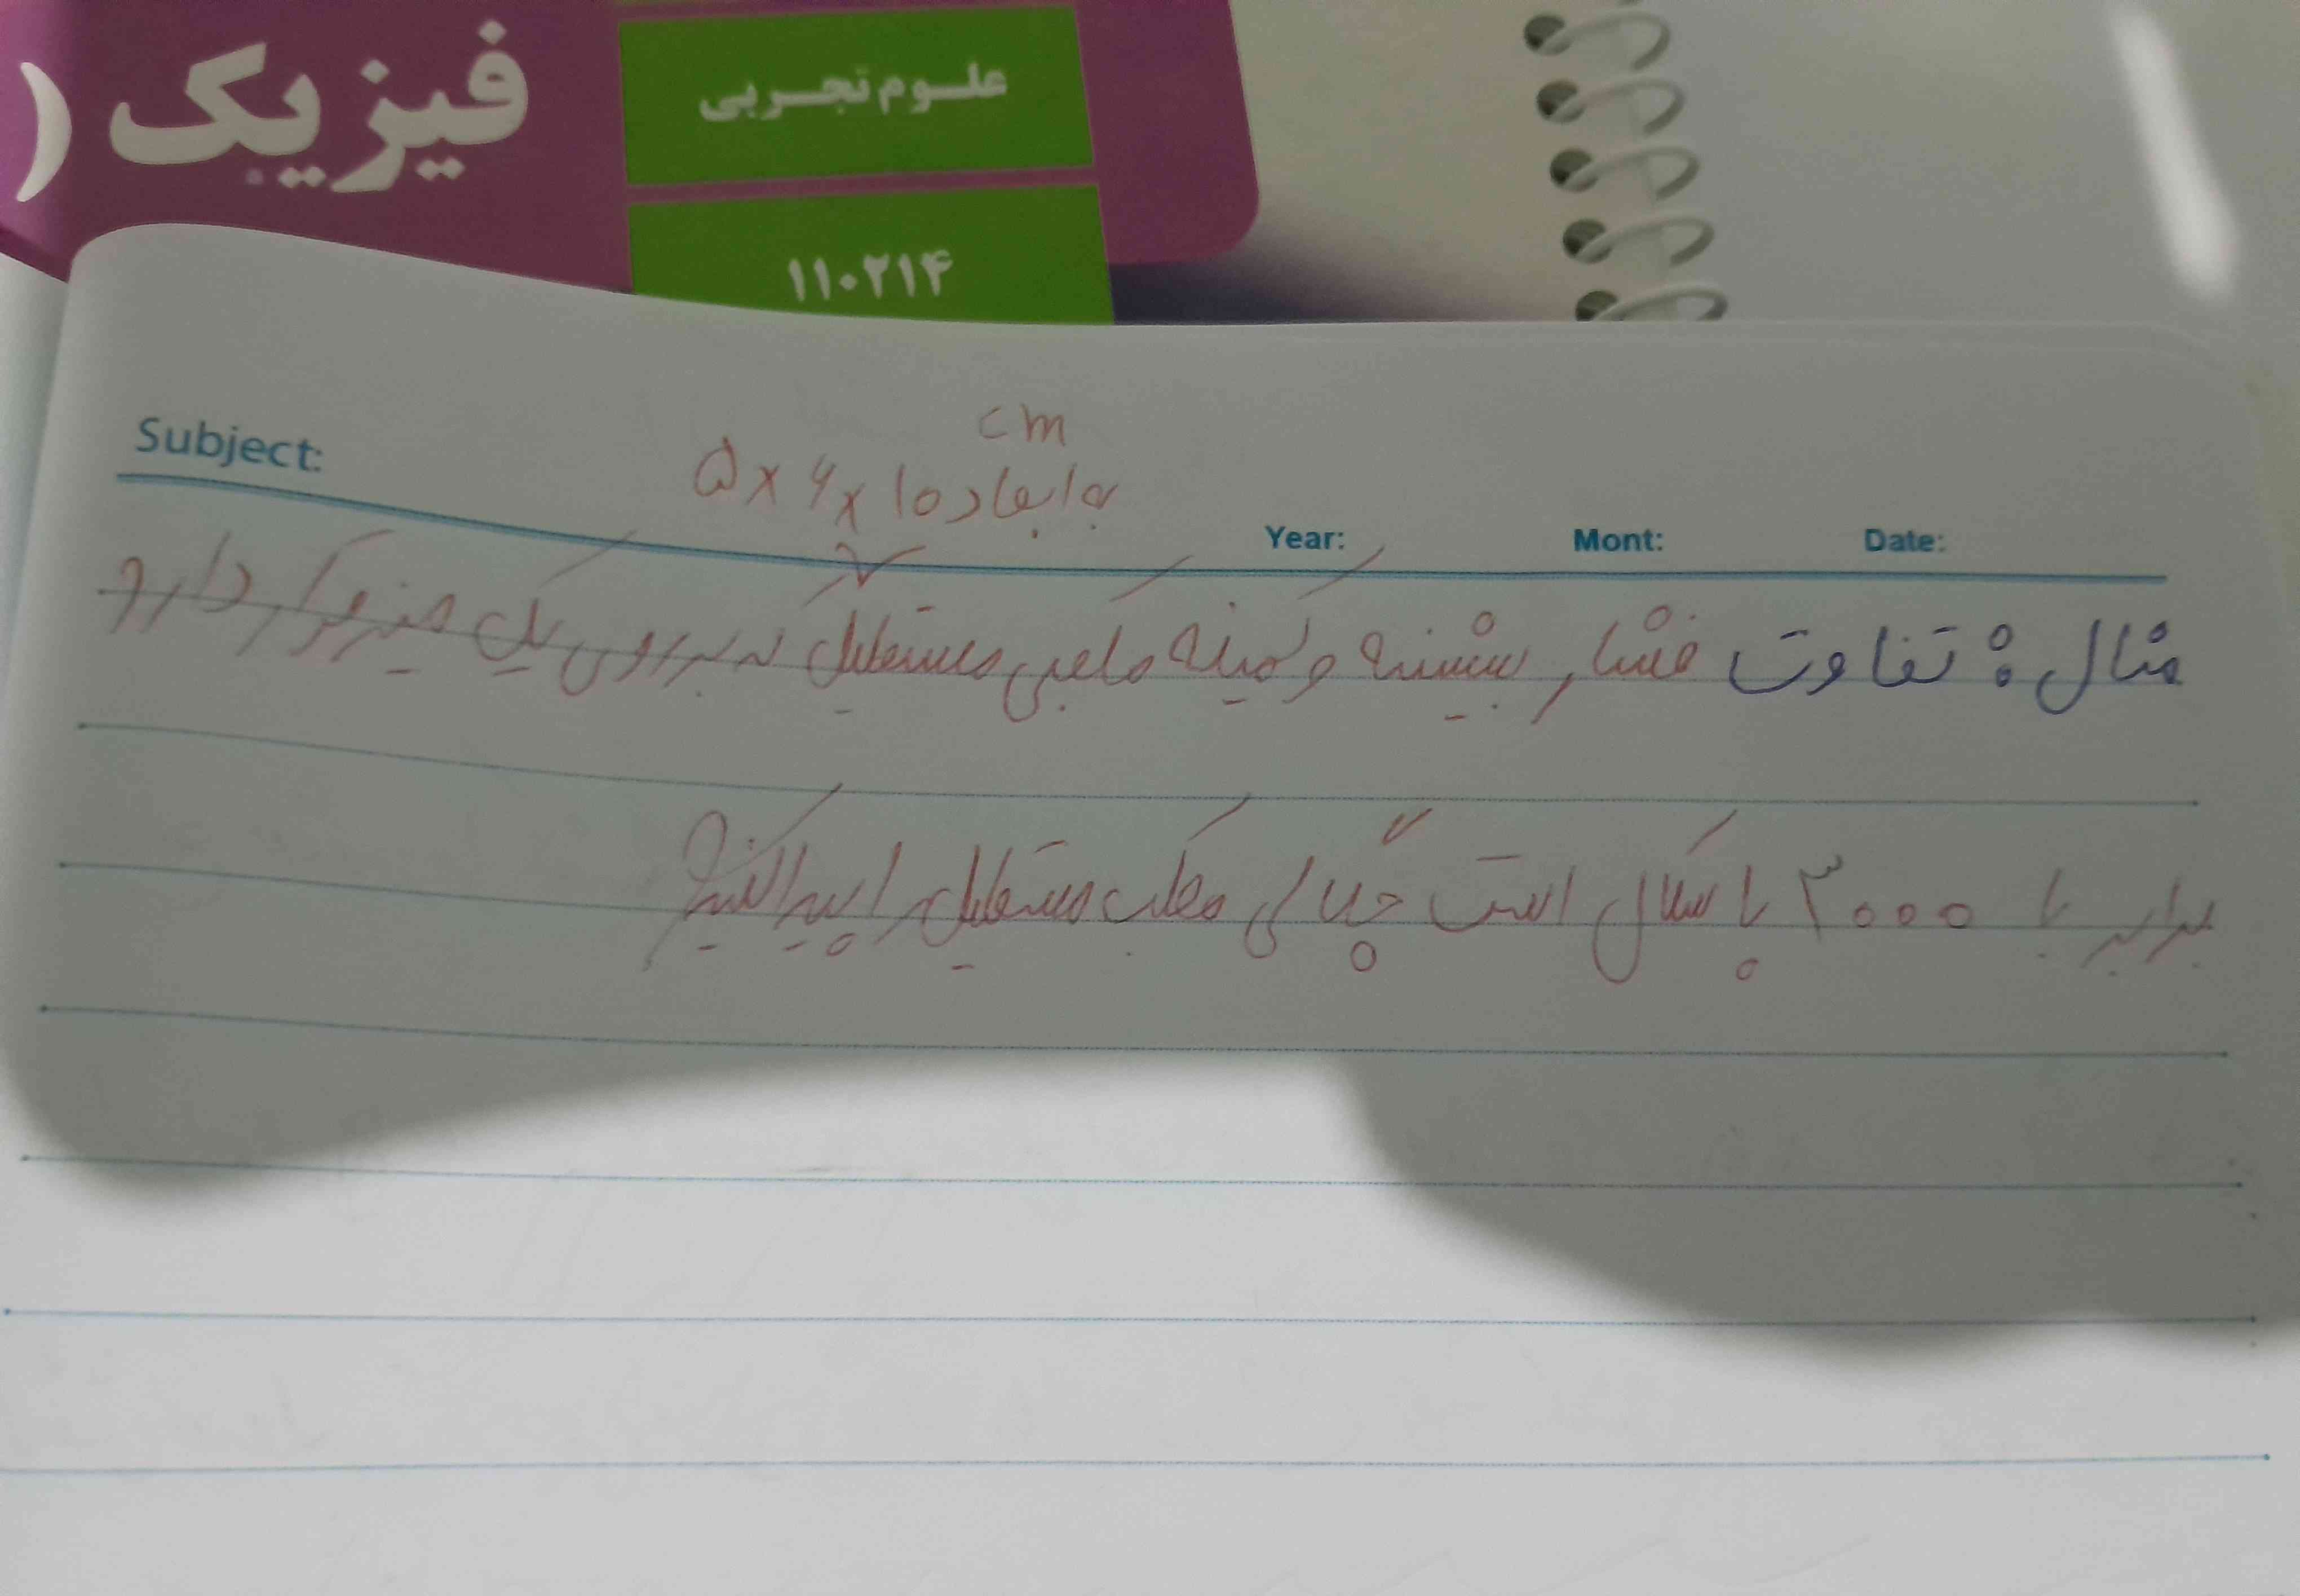 فیزیک (
علوم تجربی
۱۱۰۲۱۴
Subject:
cm
به ابعاد ۵×۶×۱۰
Year: Mont: Date:
مثال: تفاوت فشار بیشینه و کمینه مکعبی مستطیل که بر روی یک میز قرار دارد
برابر با ۳۰۰۰ پاسکال است چگالی مکعب مستطیل را پیدا کنید؟